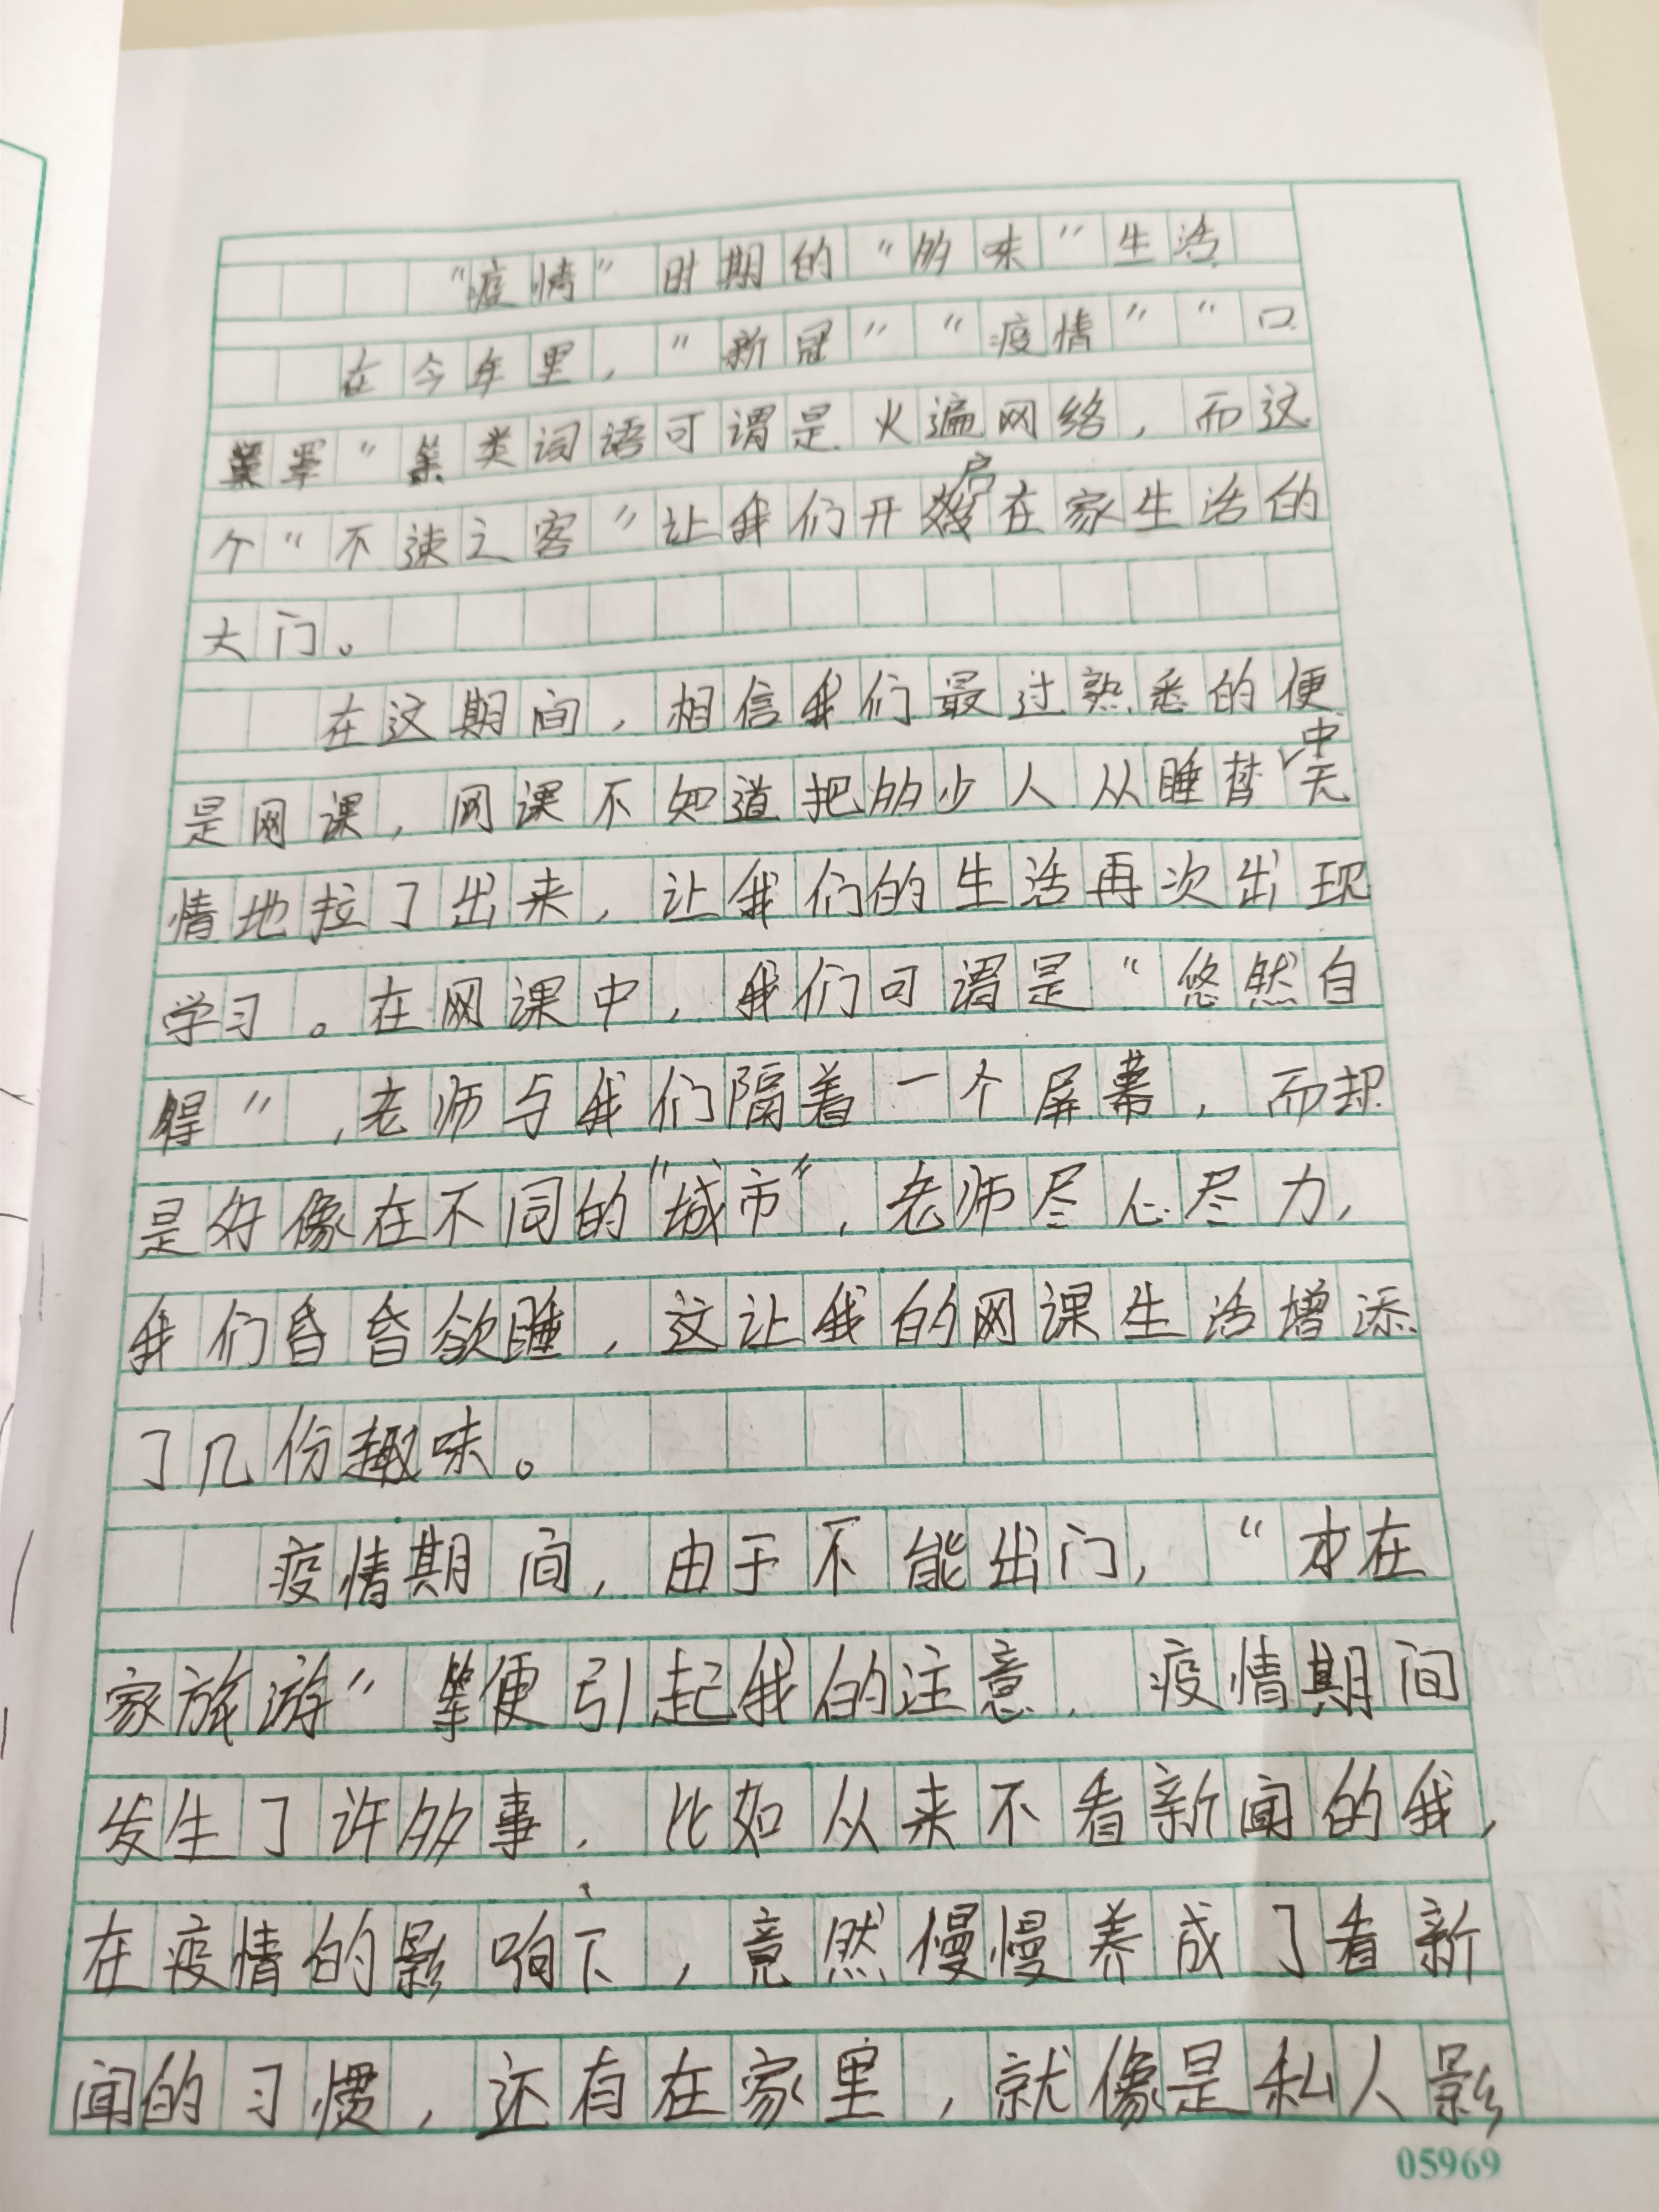 “疫情”时期的“多味”生活
在今年里，“新冠”“疫情”“口
罩”类词语可谓是火遍网络，而这
个“不速之客”让我们开启在家生活的
大门。
在这期间，相信我们最过熟悉的便
是网课，网课不知道把多少人从睡梦中无
情地拉了出来，让我们的生活再次出现
学习。在网课中，我们可谓是“悠然自
得”，老师与我们隔着一个屏幕，而却
是好像在不同的“城市”，老师尽心尽力，
我们昏昏欲睡，这让我的网课生活增添
了几份趣味。
疫情期间，由于不能出门，“才在
家旅游”便引起我的注意，疫情期间
发生了许多事，比如从来不看新闻的我，
在疫情的影响下，竟然慢慢养成了看新
闻的习惯，还有在家里，就像是私人影
05969